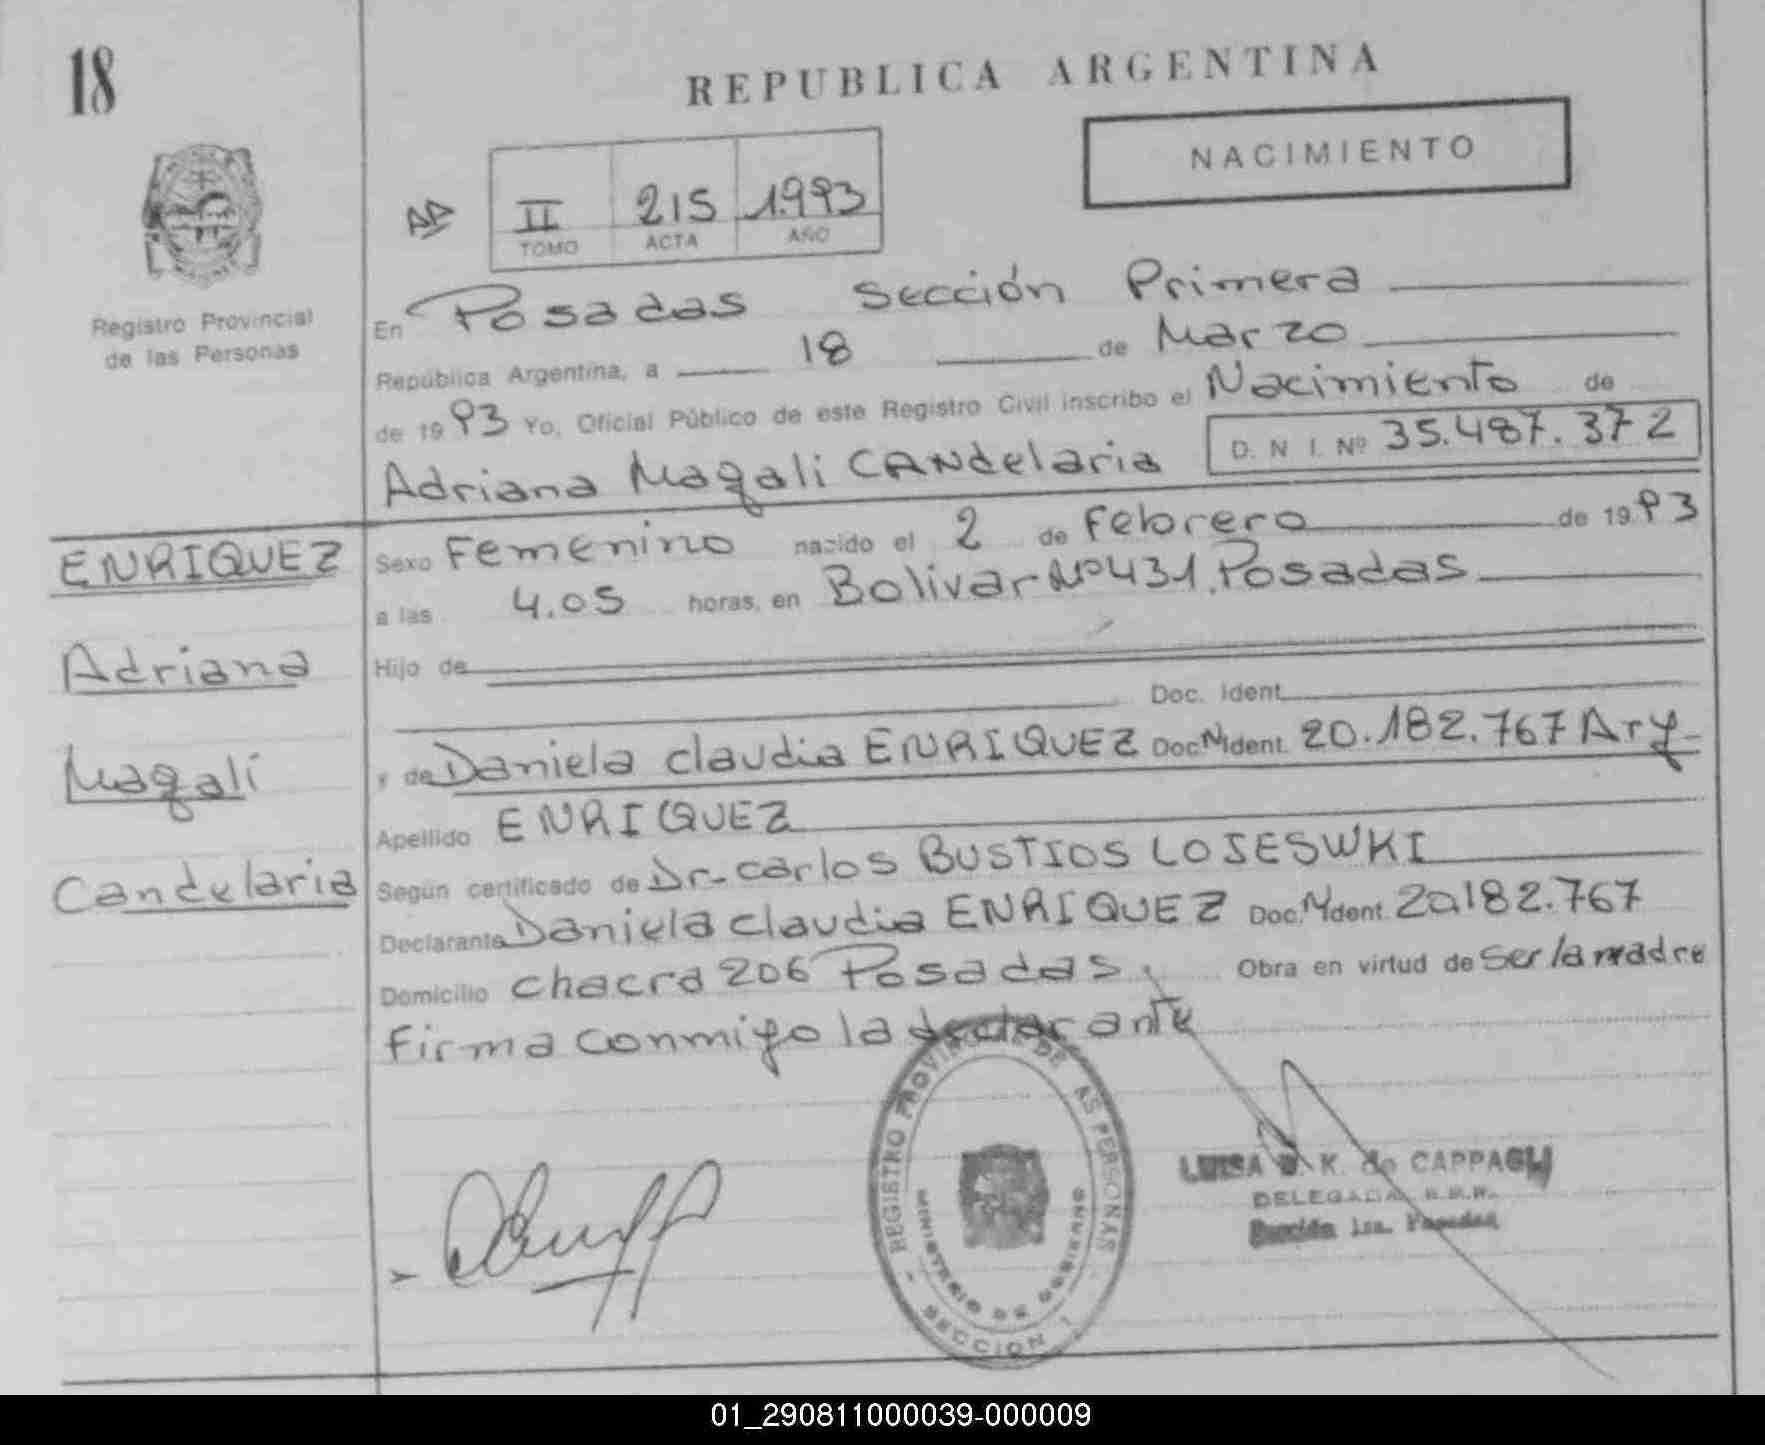 18
REPUBLICA ARGENTINA
NACIMIENTO
II 215 1.993
TOMO ACTA AÑO
Registro Provincial
de las Personas
En Posadas Sección Primera
República Argentina, a 18 de Marzo
de 1993 Yo, Oficial Público de este Registro Civil inscribo el Nacimiento de
Adriana Magali CANdelaria D. N. I. Nº 35.487.372
ENRIQUEZ
Adriana
Magali
Candelaria
Sexo Femenino nacido el 2 de Febrero de 1993
a las 4.05 horas, en Bolivar Nº 431. Posadas
Hijo de
Doc. Ident.
y de Daniela Claudia ENRIQUEZ Doc. Nident. 20.182.767 Arg
Apellido ENRIQUEZ
Según certificado de Dr. Carlos BUSTIOS LOJESWKI
Declarante Daniela Claudia ENRIQUEZ Doc. Nident. 20.182.767
Domicilio Chacra 206 Posadas. Obra en virtud de Ser la madre
Firma conmigo la declarante
REGISTRO PROVINCIAL DE LAS PERSONAS
MINISTERIO DE GOBIERNO
SECCION 1
LUISA K. de CAPPAGLI
DELEGADA R.P.P.
Sección 1ra. Posadas
01_290811000039-000009